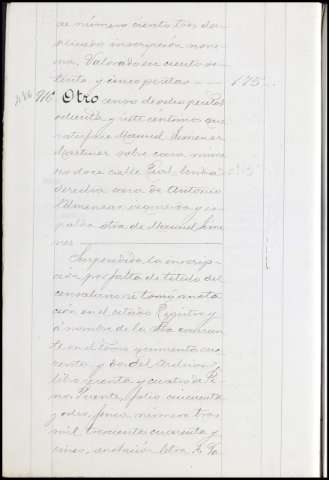 de número ciento tres du-
plicado inscripción nove-
na. Valorado en ciento se-
tenta y cinco pesetas 175
916 Otro censo de veintes pesetas
ochenta y siete céntimos que
satisface Manuel Jimenez
Martinez sobre casa nume-
ro doce calle Real, linda
derecha casa de Antonio
Almenzar izquierda y es-
palda otra de Manuel Jime-
nez
Suspendida la inscrip-
ción por falta de titulo del
censatario se tomó anota-
ción en el citado Registro y
á nombre de la
te en el tomo quinientos cua-
renta y dos del Archivo,
libro cuarenta y cuatro de Pi-
nos Puente, folio cincuenta
y ocho, finca número tres
mil trescientos cuarenta y
cinco, anotación letra A. Va-